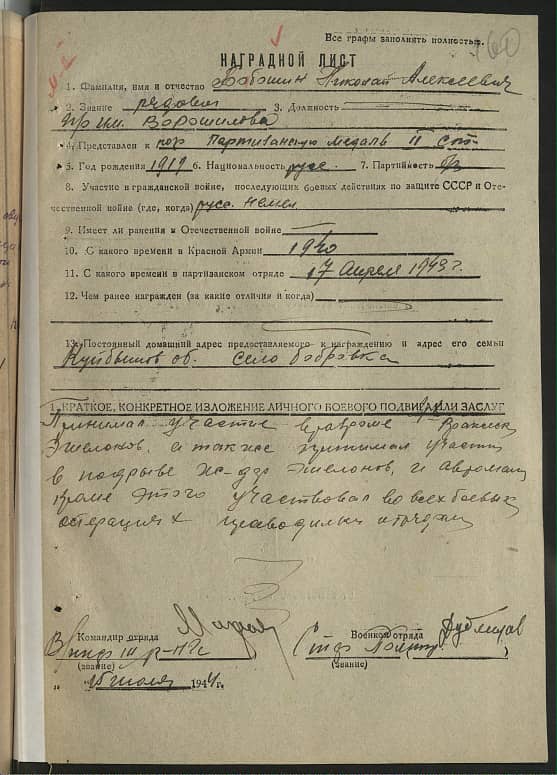 Все графы заполнять полностью.
НАГРАДНОЙ ЛИСТ
1. Фамилия, имя и отчество Бабошин Николай Алексеевич
2. Звание рядовой 3. Должность
им. Ворошилова
4. Представлен к Партизанскую медаль II ст.
5. Год рождения 1919 6. Национальность русс. 7. Партийность
8. Участие в гражданской войне, последующих боевых действиях по защите СССР и Оте-
чественной войне (где, когда) русс. немец.
9. Имеет ли ранения в Отечественной войне
10. С какого времени в Красной Армии 1940
11. С какого времени в партизанском отряде 17 Апреля 1943 г.
12. Чем ранее награжден (за какие отличия и когда)
13. Постоянный домашний адрес представляемого к награждению и адрес его семьи
Куйбышев об. село Бобровка
1. КРАТКОЕ, КОНКРЕТНОЕ ИЗЛОЖЕНИЕ ЛИЧНОГО БОЕВОГО ПОДВИГА ИЛИ ЗАСЛУГ
Принимал участие
Эшелонов, а также принимал участие
в подрыве эшелонов, и автомашин
кроме этого участвовал во всех боевых
операциях
Командир отряда
Военком отряда
(звание)
(звание)
15 июля 1944 г.